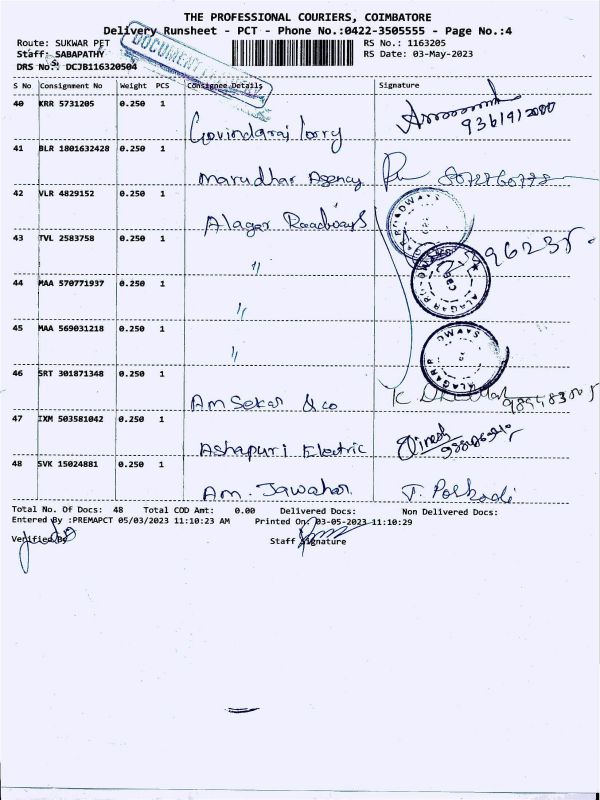 THE PROFESSIONAL COURIERS, COIMBATORE
Delivery Runsheet - PCT - Phone No.:0422-3505555 - Page No.:4
Route: SUKWAR PET
RS No.: 1163205
Staff: SABAPATHY
RS Date: 03-May-2023
DRS No.: DCJB116320504
DOCUMENT
S No Consignment No Weight PCS Consignee Details Signature
40 KRR 5731205 0.250 1
Govindaraj lorry
41 BLR 1801632428 0.250 1
Marudhar Agency
42 VLR 4829152 0.250 1
Alagar Roadways
43 TVL 2583758 0.250 1
"
44 MAA 570771937 0.250 1
"
45 MAA 569031218 0.250 1
"
46 SRT 301871348 0.250 1
Am Sekar & Co
47 IXM 503581042 0.250 1
Ashapuri Electric
Dinesh
48 SVK 15024881 0.250 1
Am. Jawahar
T. Porkodi
Total No. Of Docs: 48 Total COD Amt: 0.00 Delivered Docs: Non Delivered Docs:
Entered By :PREMAPCT 05/03/2023 11:10:23 AM Printed On: 03-05-2023 11:10:29
Verified By
Staff Signature